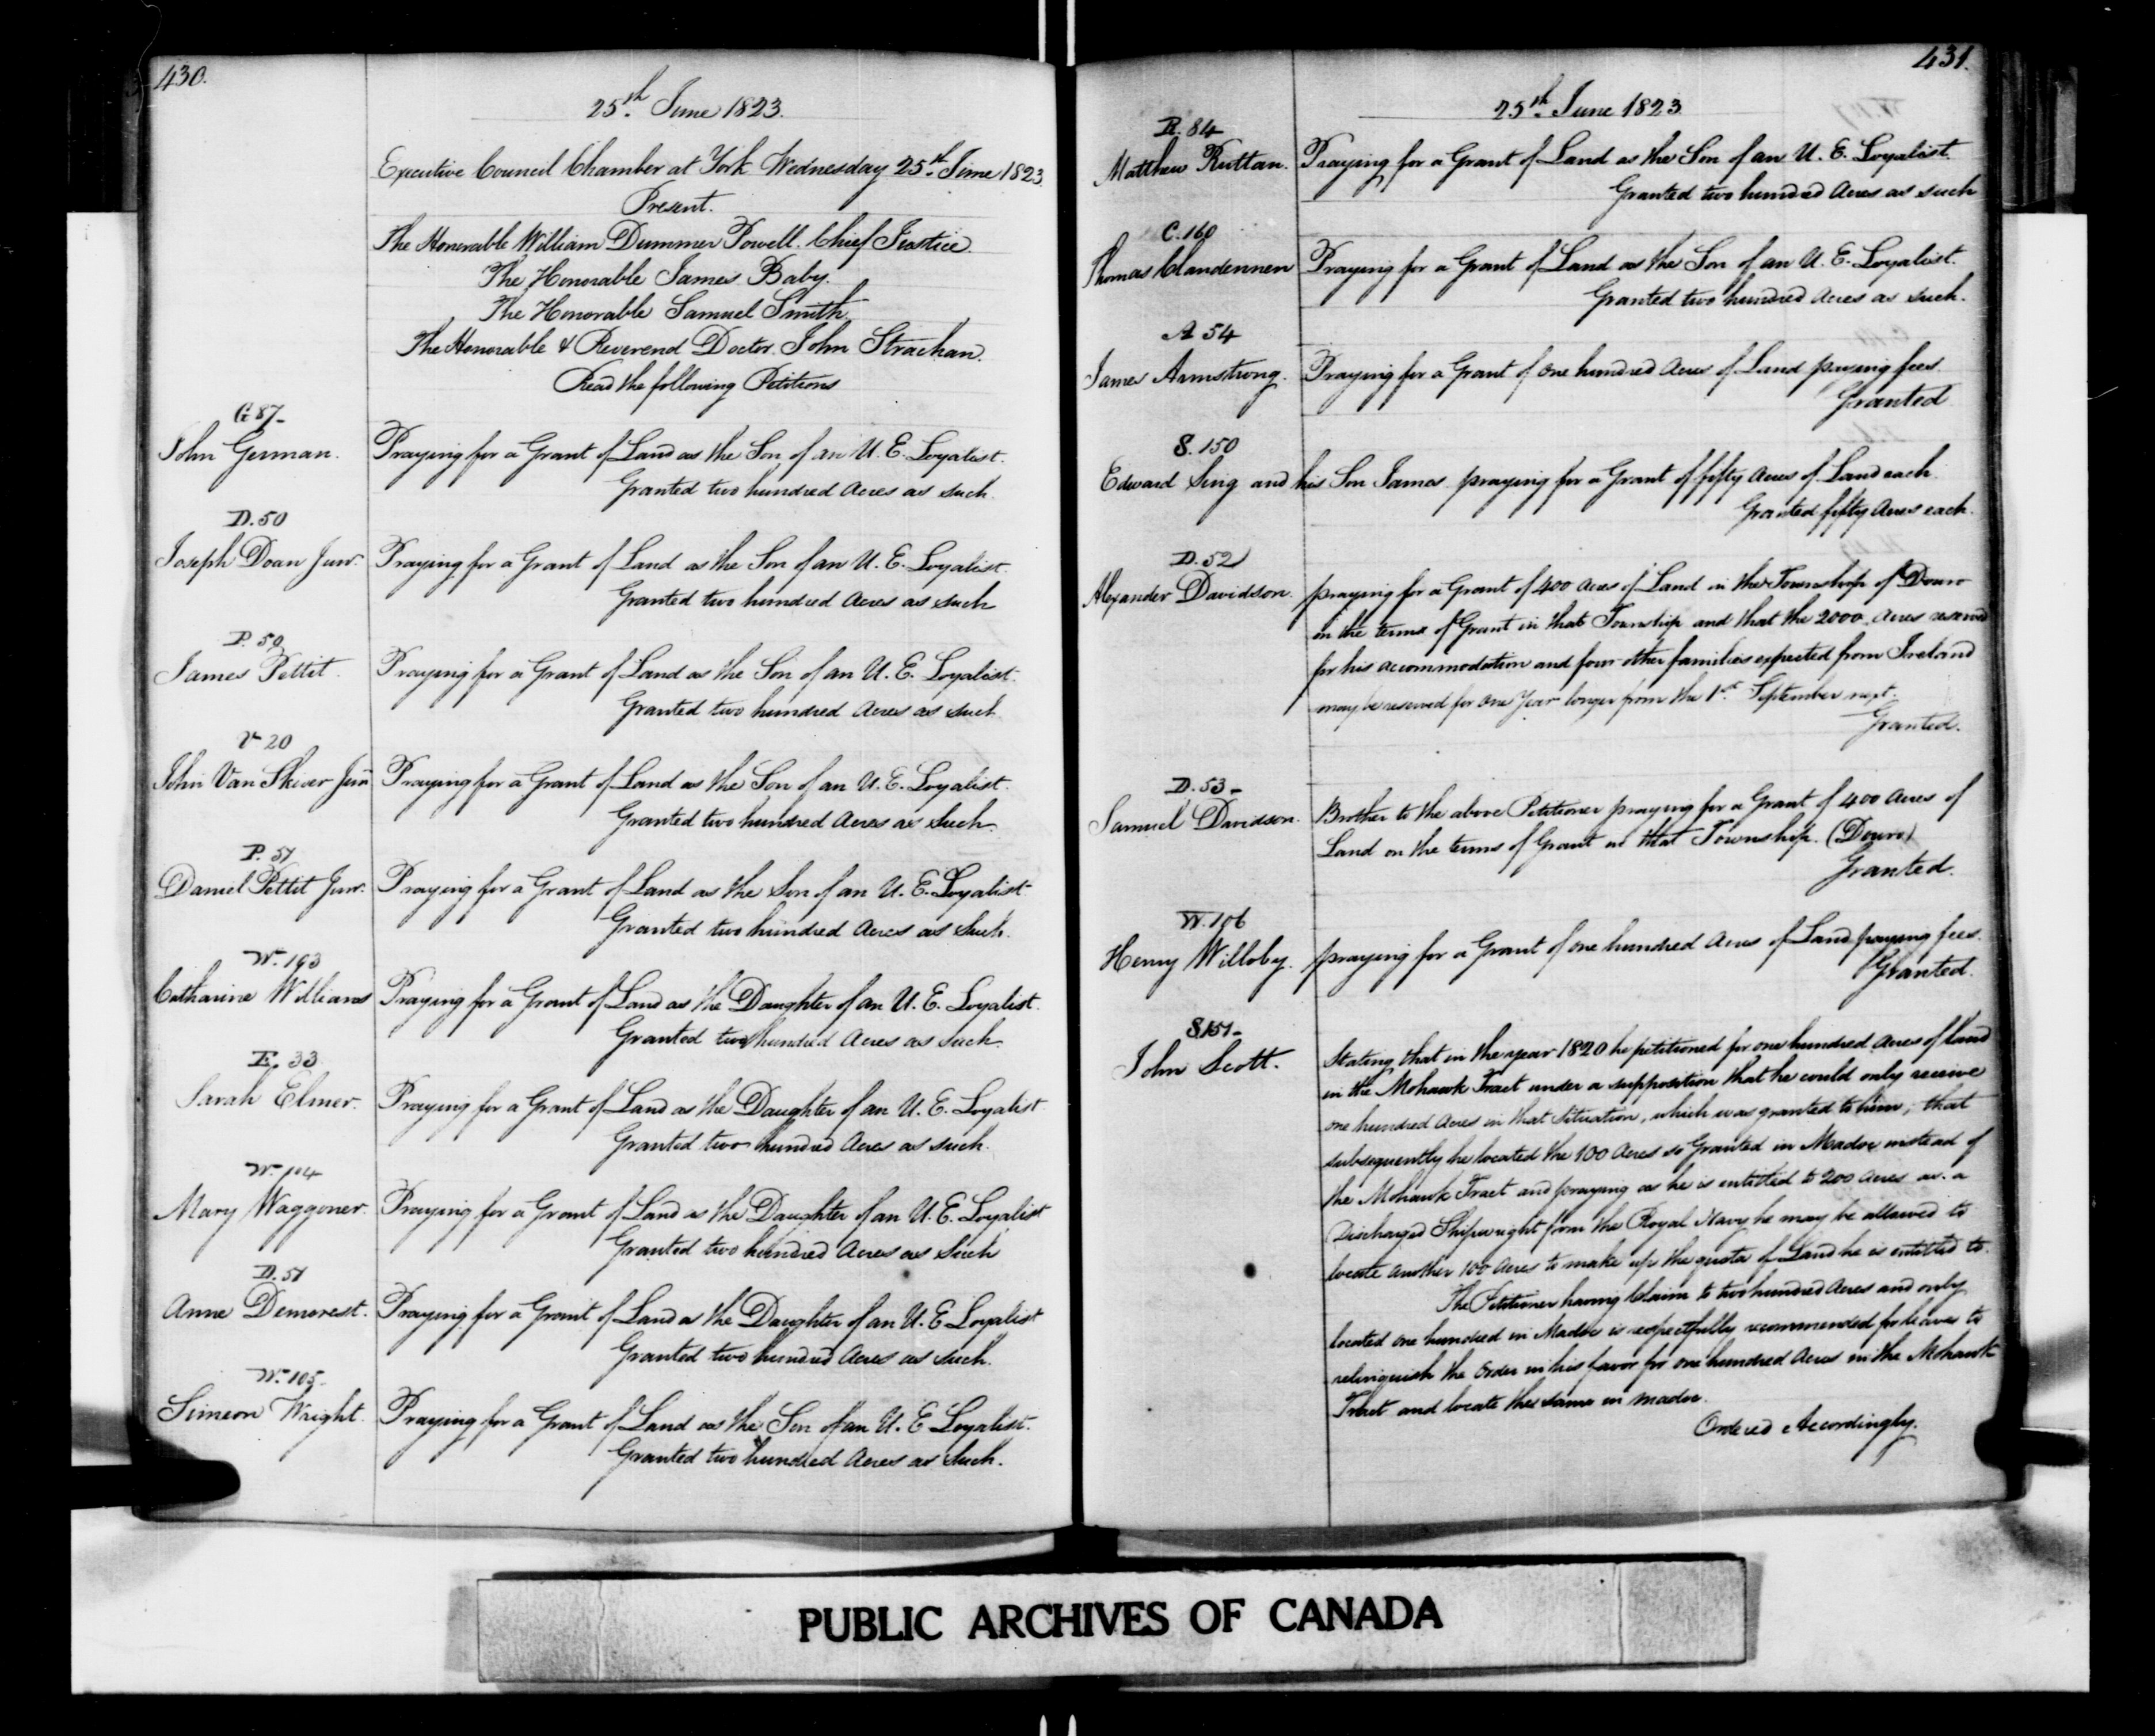 430.
25th June 1823.
Executive Council Chamber at York Wednesday 25th June 1823.
Present.
The Honorable William Dummer Powell. Chief Justice.
The Honorable James Baby.
The Honorable Samuel Smith.
The Honorable & Reverend Doctor John Strachan.
Read the following Petitions
G 87-
John German. Praying for a Grant of Land as the Son of an U. E. Loyalist.
Granted two hundred Acres as such.
D. 50
Joseph Doan Junr. Praying for a Grant of Land as the Son of an U. E. Loyalist.
Granted two hundred Acres as such
P. 50
James Pettit. Praying for a Grant of Land as the Son of an U. E. Loyalist.
Granted two hundred Acres as such
V 20
John Van Skiver Junr Praying for a Grant of Land as the Son of an U. E. Loyalist.
Granted two hundred Acres as such.
P. 51
Daniel Pettit Junr. Praying for a Grant of Land as the Son of an U. E. Loyalist
Granted two hundred Acres as such.
W. 103
Catharine Williams Praying for a Grant of Land as the Daughter of an U. E. Loyalist.
Granted two hundred Acres as such.
E. 33
Sarah Elmer. Praying for a Grant of Land as the Daughter of an U. E. Loyalist
Granted two hundred Acres as such.
W. 104
Mary Waggoner. Praying for a Grant of Land as the Daughter of an U. E. Loyalist
Granted two hundred Acres as such
D. 51
Anne Demorest. Praying for a Grant of Land as the Daughter of an U. E Loyalist
Granted two hundred Acres as such.
W. 105
Simeon Wright. Praying for a Grant of Land as the Son of an U. E Loyalist.
Granted two hundred Acres as such.
431.
25th June 1823
R. 84
Matthew Ruttan. Praying for a Grant of Land as the Son of an U. E. Loyalist.
Granted two hundred Acres as such
C. 160
Thomas Clandennen Praying for a Grant of Land as the Son of an U. E. Loyalist.
Granted two hundred Acres as such.
A 54
James Armstrong. Praying for a Grant of One hundred Acres of Land paying fees
Granted
S. 150
Edward Sing and his Son James praying for a Grant of fifty Acres of Land each.
Granted fifty Acres each.
D. 52
Alexander Davidson. praying for a Grant of 400 Acres of Land in the Township of Douro
on the terms of Grant in that Township and that the 2000 Acres reserved
for his accommodation and four other families expected from Ireland
may be reserved for One Year longer from the 1st September next.
Granted.
D. 53-
Samuel Davidson. Brother to the above Petitioner praying for a Grant of 400 Acres of
Land on the terms of Grant in that Township. (Douro)
Granted.
W. 106
Henry Willoby. praying for a Grant of One hundred Acres of Land paying fees.
Granted.
S 151-
John Scott. Stating that in the year 1820 he petitioned for one hundred Acres of Land
in the Mohawk Tract under a supposition that he could only receive
one hundred Acres in that Situation, which was granted to him; that
subsequently he located the 100 Acres so Granted in Madoc instead of
the Mohawk Tract and praying as he is entitled to 200 Acres as a
Discharged Shipwright from the Royal Navy he may be allowed to
locate another 100 Acres to make up the quota of Land he is entitled to.
The Petitioner having Claim to two hundred Acres and only
located one hundred in Madoc is respectfully recommended for leave to
relinquish the Order in his favor for one hundred Acres in the Mohawk
Tract and locate the same in Madoc.
Ordered Accordingly.
PUBLIC ARCHIVES OF CANADA